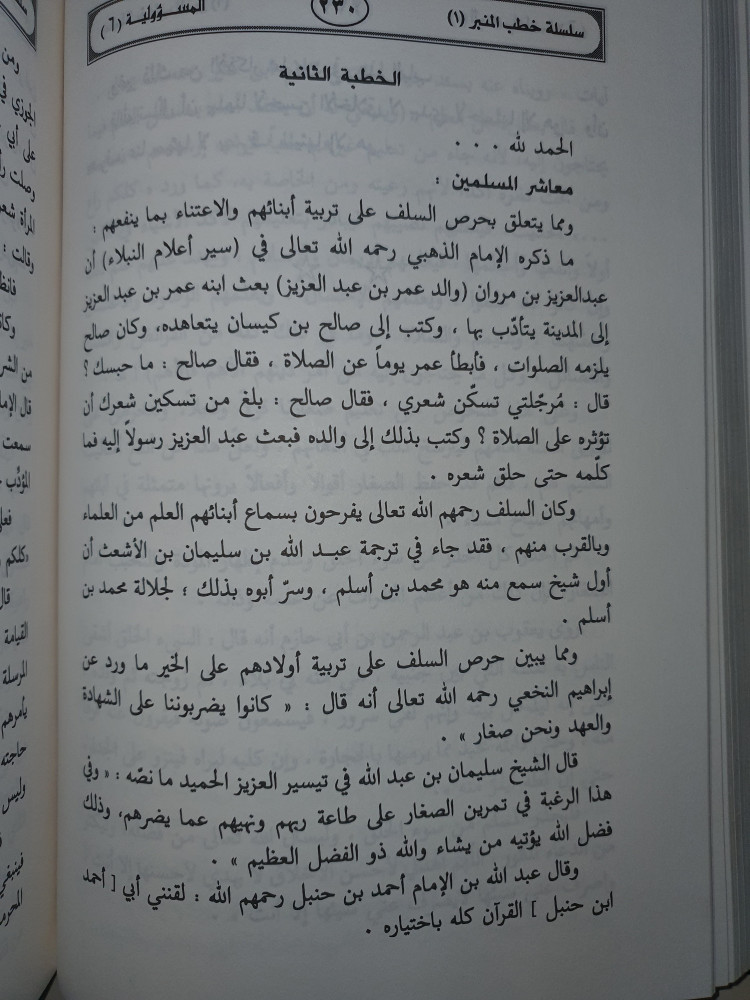 سلسلة خطب المنبر (١)
٢٣٠
المسؤولية (٦)
الخطبة الثانية
الحمد لله . . .
معاشر المسلمين :
ومما يتعلق بحرص السلف على تربية أبنائهم والاعتناء بما ينفعهم :
ما ذكره الإمام الذهبي رحمه الله تعالى في (سير أعلام النبلاء) أن
عبدالعزيز بن مروان (والد عمر بن عبد العزيز) بعث ابنه عمر بن عبد العزيز
إلى المدينة يتأدّب بها ، وكتب إلى صالح بن كيسان يتعاهده، وكان صالح
يلزمه الصلوات ، فأبطأ عمر يوماً عن الصلاة ، فقال صالح : ما حبسك ؟
قال : مُرجّلتي تسكّن شعري ، فقال صالح : بلغ من تسكين شعرك أن
تؤثره على الصلاة ؟ وكتب بذلك إلى والده فبعث عبد العزيز رسولاً إليه فما
كلّمه حتى حلق شعره .
وكان السلف رحمهم الله تعالى يفرحون بسماع أبنائهم العلم من العلماء
وبالقرب منهم ، فقد جاء في ترجمة عبد الله بن سليمان بن الأشعث أن
أول شيخ سمع منه هو محمد بن أسلم ، وسرّ أبوه بذلك ؛ لجلالة محمد بن
أسلم .
ومما يبين حرص السلف على تربية أولادهم على الخير ما ورد عن
إبراهيم النخعي رحمه الله تعالى أنه قال : « كانوا يضربوننا على الشهادة
والعهد ونحن صغار » .
قال الشيخ سليمان بن عبد الله في تيسير العزيز الحميد ما نصّه : « وفي
هذا الرغبة في تمرين الصغار على طاعة ربهم ونهيهم عما يضرهم، وذلك
فضل الله يؤتيه من يشاء والله ذو الفضل العظيم » .
وقال عبد الله بن الإمام أحمد بن حنبل رحمهم الله : لقنني أبي [ أحمد
ابن حنبل ] القرآن كله باختياره .